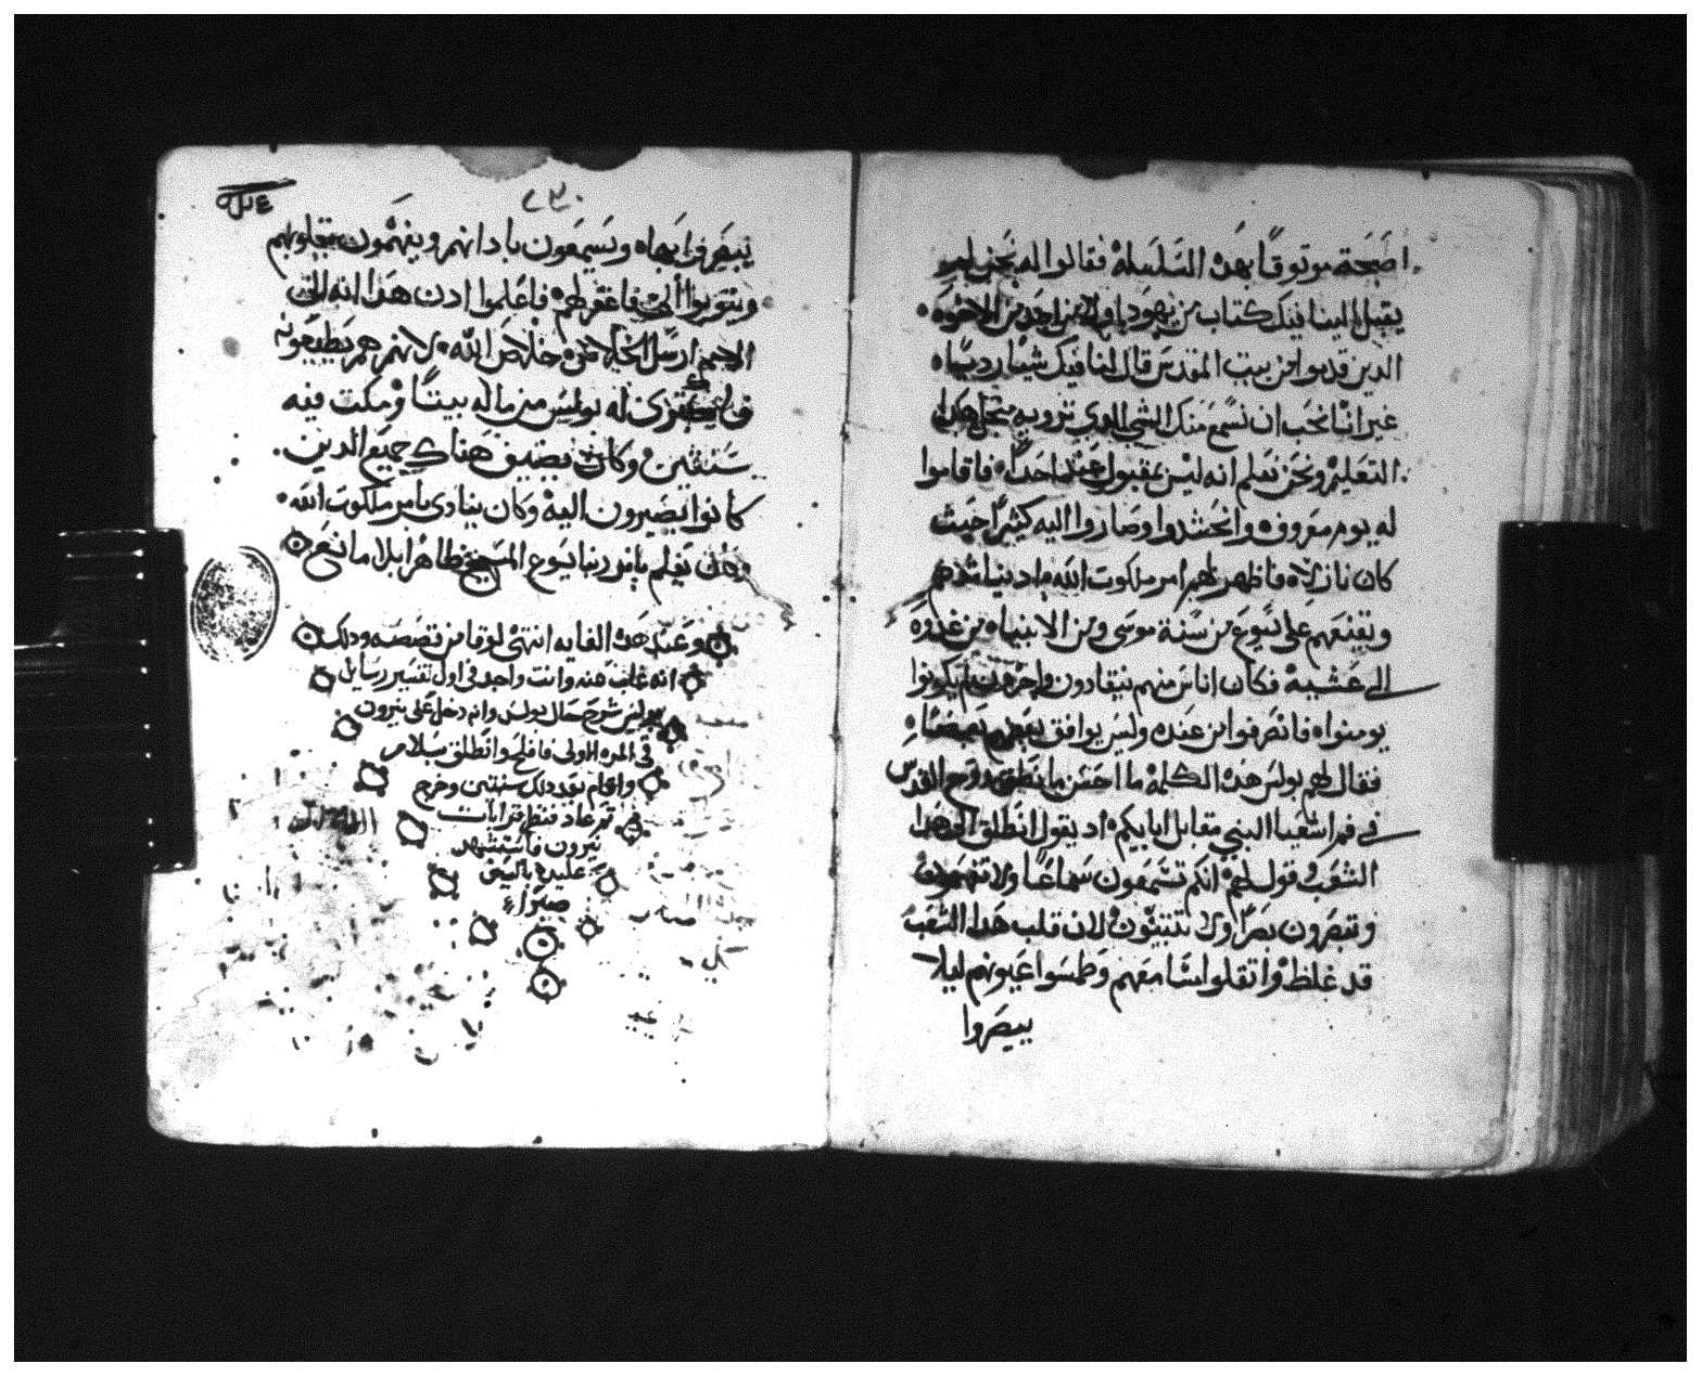 اصبحة موتوقًا بهده السلسلة فقالوا له نحن لم
يقبل الينا فيك كتاب من يهودا ولا من احد من الاخوه
الدين قدموا من بيت المقدس قال لنا فيك شيا رديا
غير انّا نحب ان نسمع منك الشي الدي ترويه هكدا
التعليم ونحن نعلم انه ليس بمقبول عند احدًا فاقاموا
له يوم معروف وانحشدوا وصاروا اليه كثيرًا حيث
كان نازلا فاظهر لهم امر ملكوت الله اد يناشدهم
ويقنعهم على يسوع من سنة موسى ومن الانبياء من غدوة
الى عشية فكان اناس منهم ينقادون واخرون لم يكونوا
يومنوا فانصرفوا من عنده وليس يوافق بعضهم بعضًا
فقال لهم بولس هده الكلمة ما احسن ما نطق روح القدس
في فم اشعيا النبي مقابل ابايكم اد يقول انطلق الى هدا
الشعب وقول لهم انكم تسمعون سماعًا ولا تفهمون
وتبصرون بصرًا ولا تتبيّنون لان قلب هدا الشعب
قد غلظ واتقلوا مسامعهم وطمسوا عيونهم ليلا
يبصروا
٢٣٠
يبصروا بها ويسمعون بادانهم ويفهمون بقلوبهم
ويتوبوا الي فاغفر لهم فاعلموا ادن هدا انه الى
الامم ارسل خلاص الله لانهم هم يطيعونه
له بولس من ماله بيتًا ومكت فيه
سنتين وكان يضيف هناك جميع الدين
كانوا يصيرون اليه وكان ينادي بامر ملكوت الله
وكان يعلم بامر ربنا يسوع المسيح ظاهرا بلا مانع
وعند هده الغايه انتهى لوقا من قصصه ودلك
انه غاب عنه وانت واجد في اول تفسير رسايل
بولس شرح حال بولس وانه دخل على نيرون
في المره الاولى فافلح وانطلق بسلام
واقام بعد دلك سنتين وخرج
ثم عاد فنظر قرابات
نيرون فاستشهد
عليده بالسيف
صبرًا